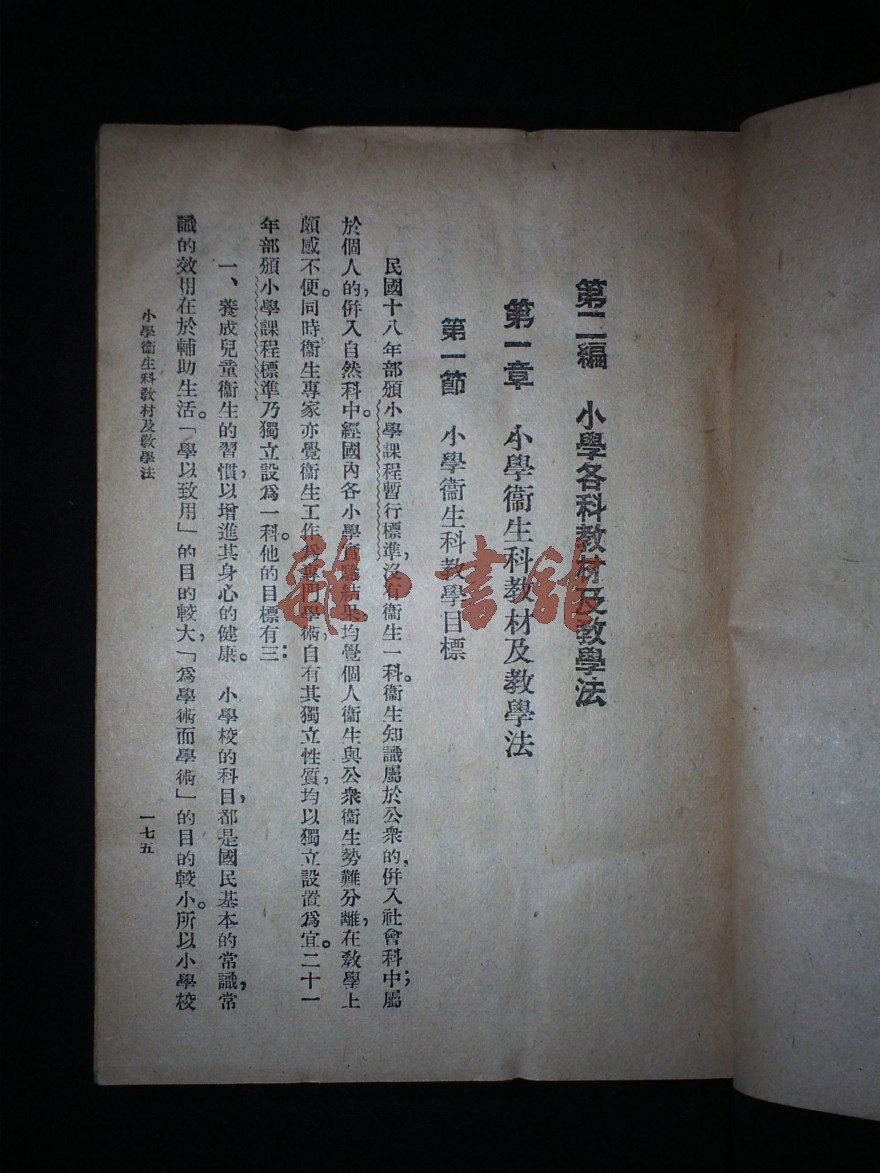 第二編　小學各科教材及教學法
第一章　小學衞生科教材及教學法
第一節　小學衞生科教學目標
民國十八年部頒小學課程暫行標準，沒有衞生一科。衞生知識屬於公衆的，併入社會科中；屬
於個人的，併入自然科中。經國內各小學實驗結果，均覺個人衞生與公衆衞生勢難分離，在教學上
頗感不便。同時衞生專家亦覺衞生工作爲專門學術，自有其獨立性質，均以獨立設置爲宜。二十一
年部頒小學課程標準乃獨立設爲一科。他的目標有三：
一、養成兒童衞生的習慣，以增進其身心的健康。　小學校的科目，都是國民基本的常識，常
識的效用在於輔助生活。「學以致用」的目的較大，「爲學術而學術」的目的較小。所以小學校
小學衞生科教材及教學法
一七五
雜·書舘